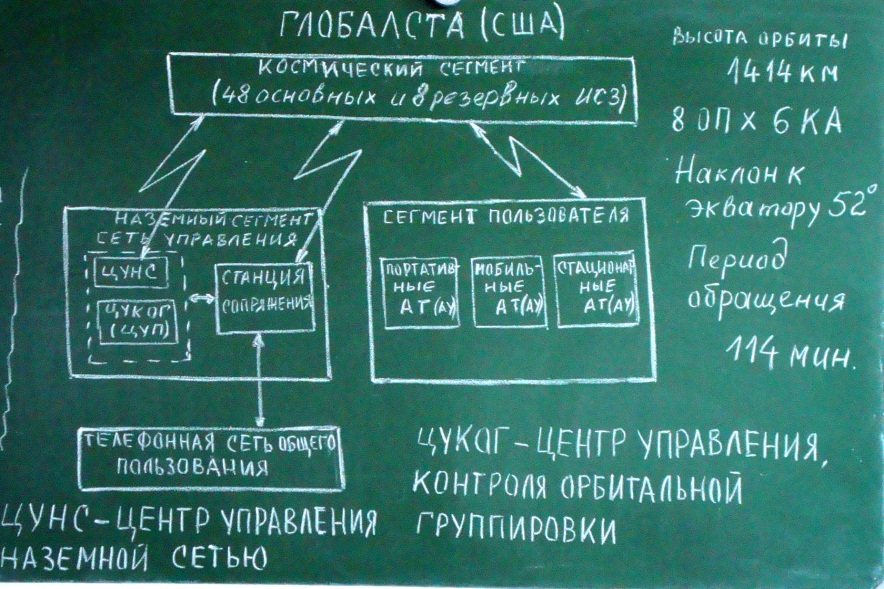 ГЛОБАЛСТА (США)
КОСМИЧЕСКИЙ СЕГМЕНТ
(48 основных и 8 резервных ИСЗ)
НАЗЕМНЫЙ СЕГМЕНТ
СЕТЬ УПРАВЛЕНИЯ
ЦУНС
ЦУКОГ
(ЦУП)
СТАНЦИЯ
СОПРЯЖЕНИЯ
ТЕЛЕФОННАЯ СЕТЬ ОБЩЕГО
ПОЛЬЗОВАНИЯ
СЕГМЕНТ ПОЛЬЗОВАТЕЛЯ
ПОРТАТИВ-
НЫЕ
АТ(АУ)
МОБИЛЬ-
НЫЕ
АТ(АУ)
СТАЦИОНАР
НЫЕ
АТ(АУ)
ВЫСОТА ОРБИТЫ
1414 КМ
8 ОП X 6 КА
Наклон к
экватору 52°
Период
обращения
114 мин.
ЦУНС-ЦЕНТР УПРАВЛЕНИЯ
НАЗЕМНОЙ СЕТЬЮ
ЦУКОГ-ЦЕНТР УПРАВЛЕНИЯ,
КОНТРОЛЯ ОРБИТАЛЬНОЙ
ГРУППИРОВКИ